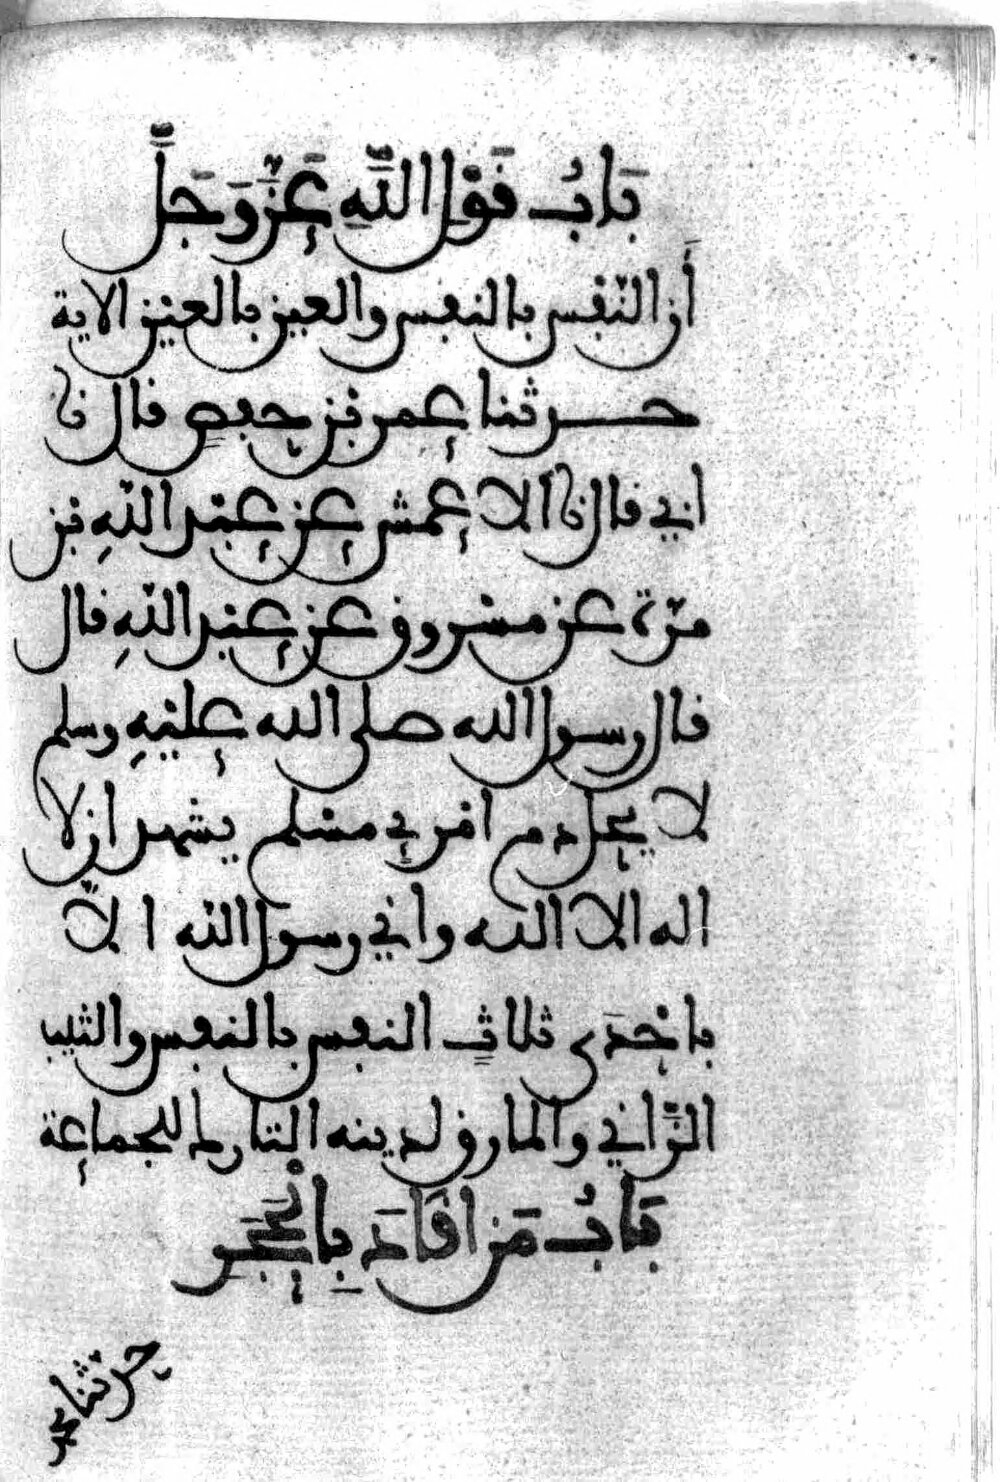 بَابُ قَوْلِ اللَّهِ عَزَّ وَجَلَّ
أن النّفس بالنفس والعين بالعين الاية
حدثنا عمر بن حفص قال نا
ابي قال نا الاعمش عن عبد اللهِ بن
مرّة عن مسروق عن عبد اللهِ قال
قال رسول الله صلى الله عليهِ وسلم
لا يحل دم امرئ مسلم يشهد ان لا
اله الا الله واني رسول الله الاّ
باحدَى ثلاث النفس بالنفس والثيب
الزّاني والمارق لدينه التارك للجماعة
بَابُ مَن اقَادَ بِالْحَجَرِ
حدثنا محمد